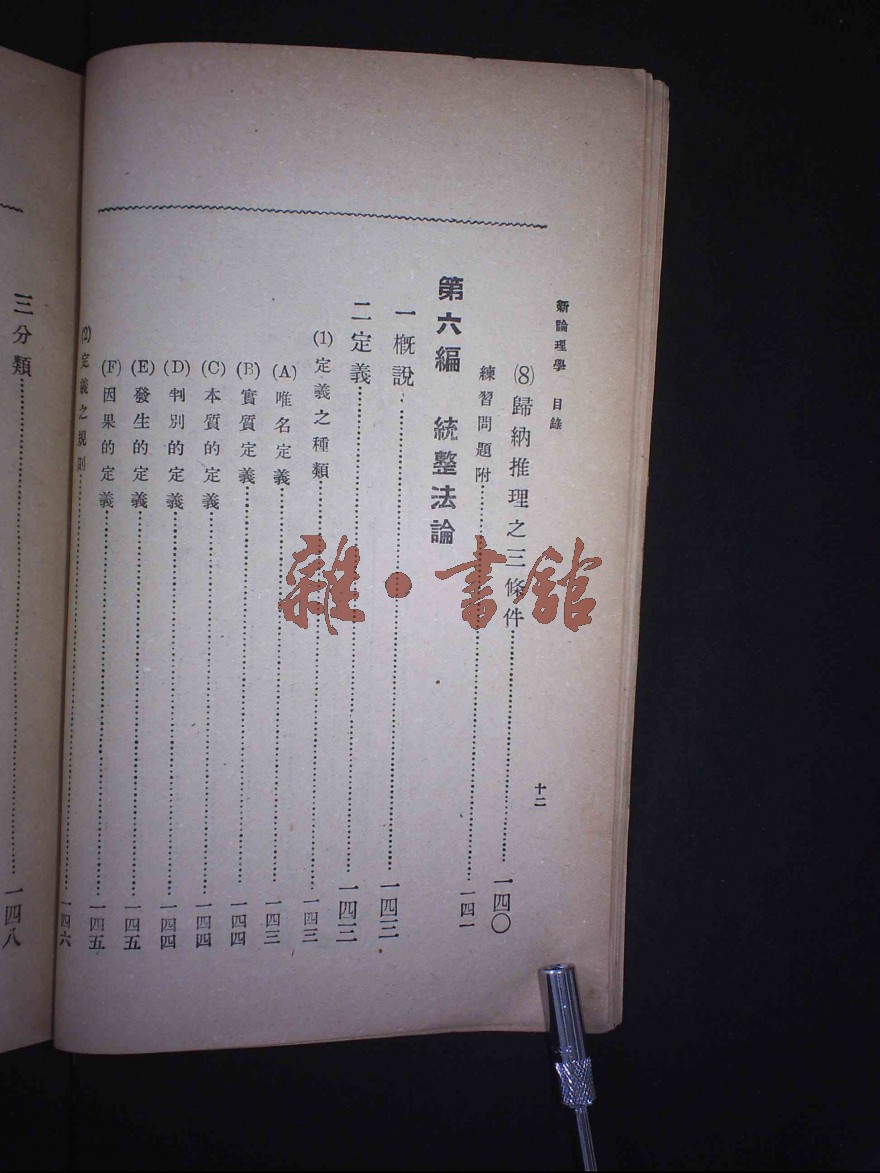 新論理學 目錄
十二
(8)歸納推理之三條件 一四〇
練習問題附 一四一
第六編 統整法論
一概說 一四三
二定義 一四三
(1)定義之種類 一四三
(A)唯名定義 一四三
(B)實質定義 一四四
(C)本質的定義 一四四
(D)判別的定義 一四四
(E)發生的定義 一四五
(F)因果的定義 一四五
(2)定義之規則 一四六
三分類 一四八
雜·書館